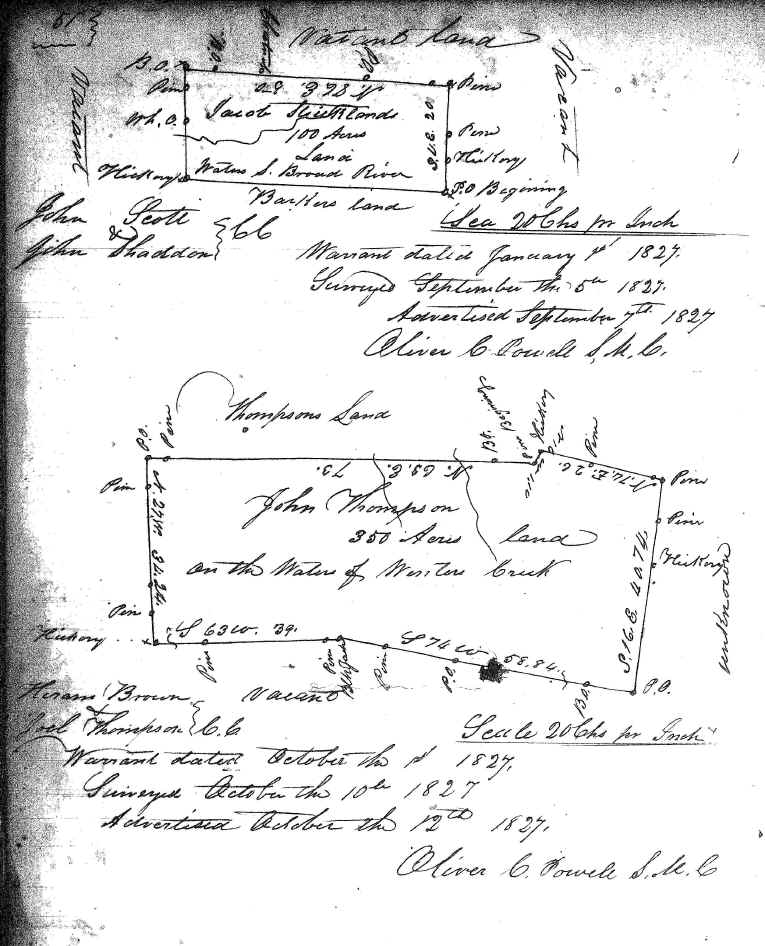 61
Vacant land
B.O.
Pine
Wh. O.
Hickory
Vacant
P.O.
Pine
Pine
Hickory
P.O Begining
Vacant
Jacob Stricklands
100 Acres
Land
Waters S. Broad River
Barkers land
John Scott
& C C
John Shaddon
Sca 20 Chs pr Inch
Warrant dated January 1st 1827.
Surveyed September the 5th 1827.
Advertised September 7th 1827
Oliver C Powell S. M. C.
Thompsons Land
P.O.
Pine
Pine
Pine
Hickory
Hickory
Pine
Pine
Pine
Hickory
P.O.
unknown
N. 69. E. 73.
N. 74. E. 26.
N. 27. W. 34.24.
S. 16. E. 40.74.
John Thompson
350 Acres land
on the Waters of Wenters Creek
S 63 W. 39.
S 74 W 58.84.
Pine
Pine
Blk Jack
Pine
P.O.
B.O.
Hiram Brown
& C.C
Joel Thompson
vacant
Scale 20 Chs pr Inch
Warrant dated October the 1st 1827.
Surveyed October the 10th 1827
Advertised October the 12th 1827.
Oliver C. Powell S. M. C